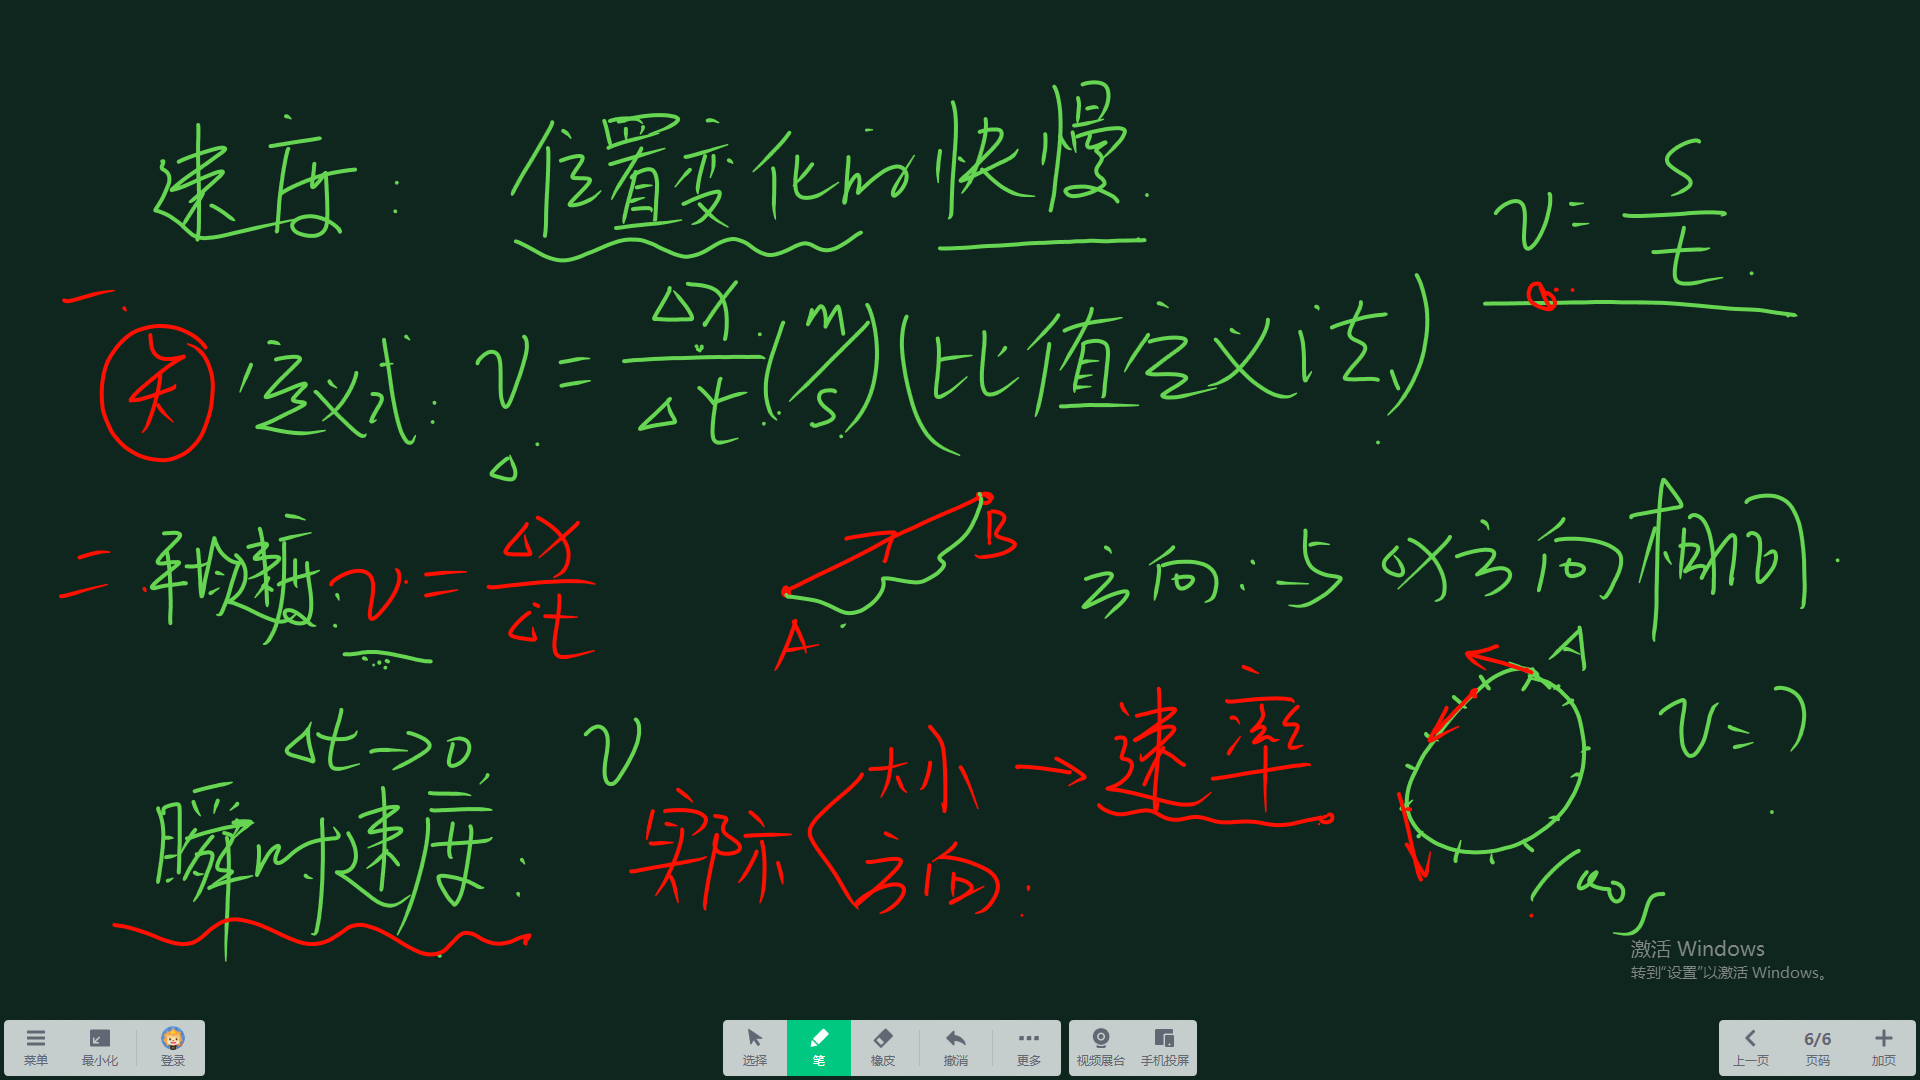 速度: 位置变化的快慢. v=s/t.
一.
矢 定义式: v=Δx/Δt (m/s) (比值定义法)
二. 平均速度: v=Δx/Δt A B 方向:与Δx方向相同.
Δt→0 v 大小→速率 A v=?
瞬时速度: 实际 方向. 100s
激活 Windows
转到"设置"以激活 Windows。
菜单 最小化 登录 选择 笔 橡皮 撤消 更多 视频展台 手机投屏 上一页 6/6 页码 加页